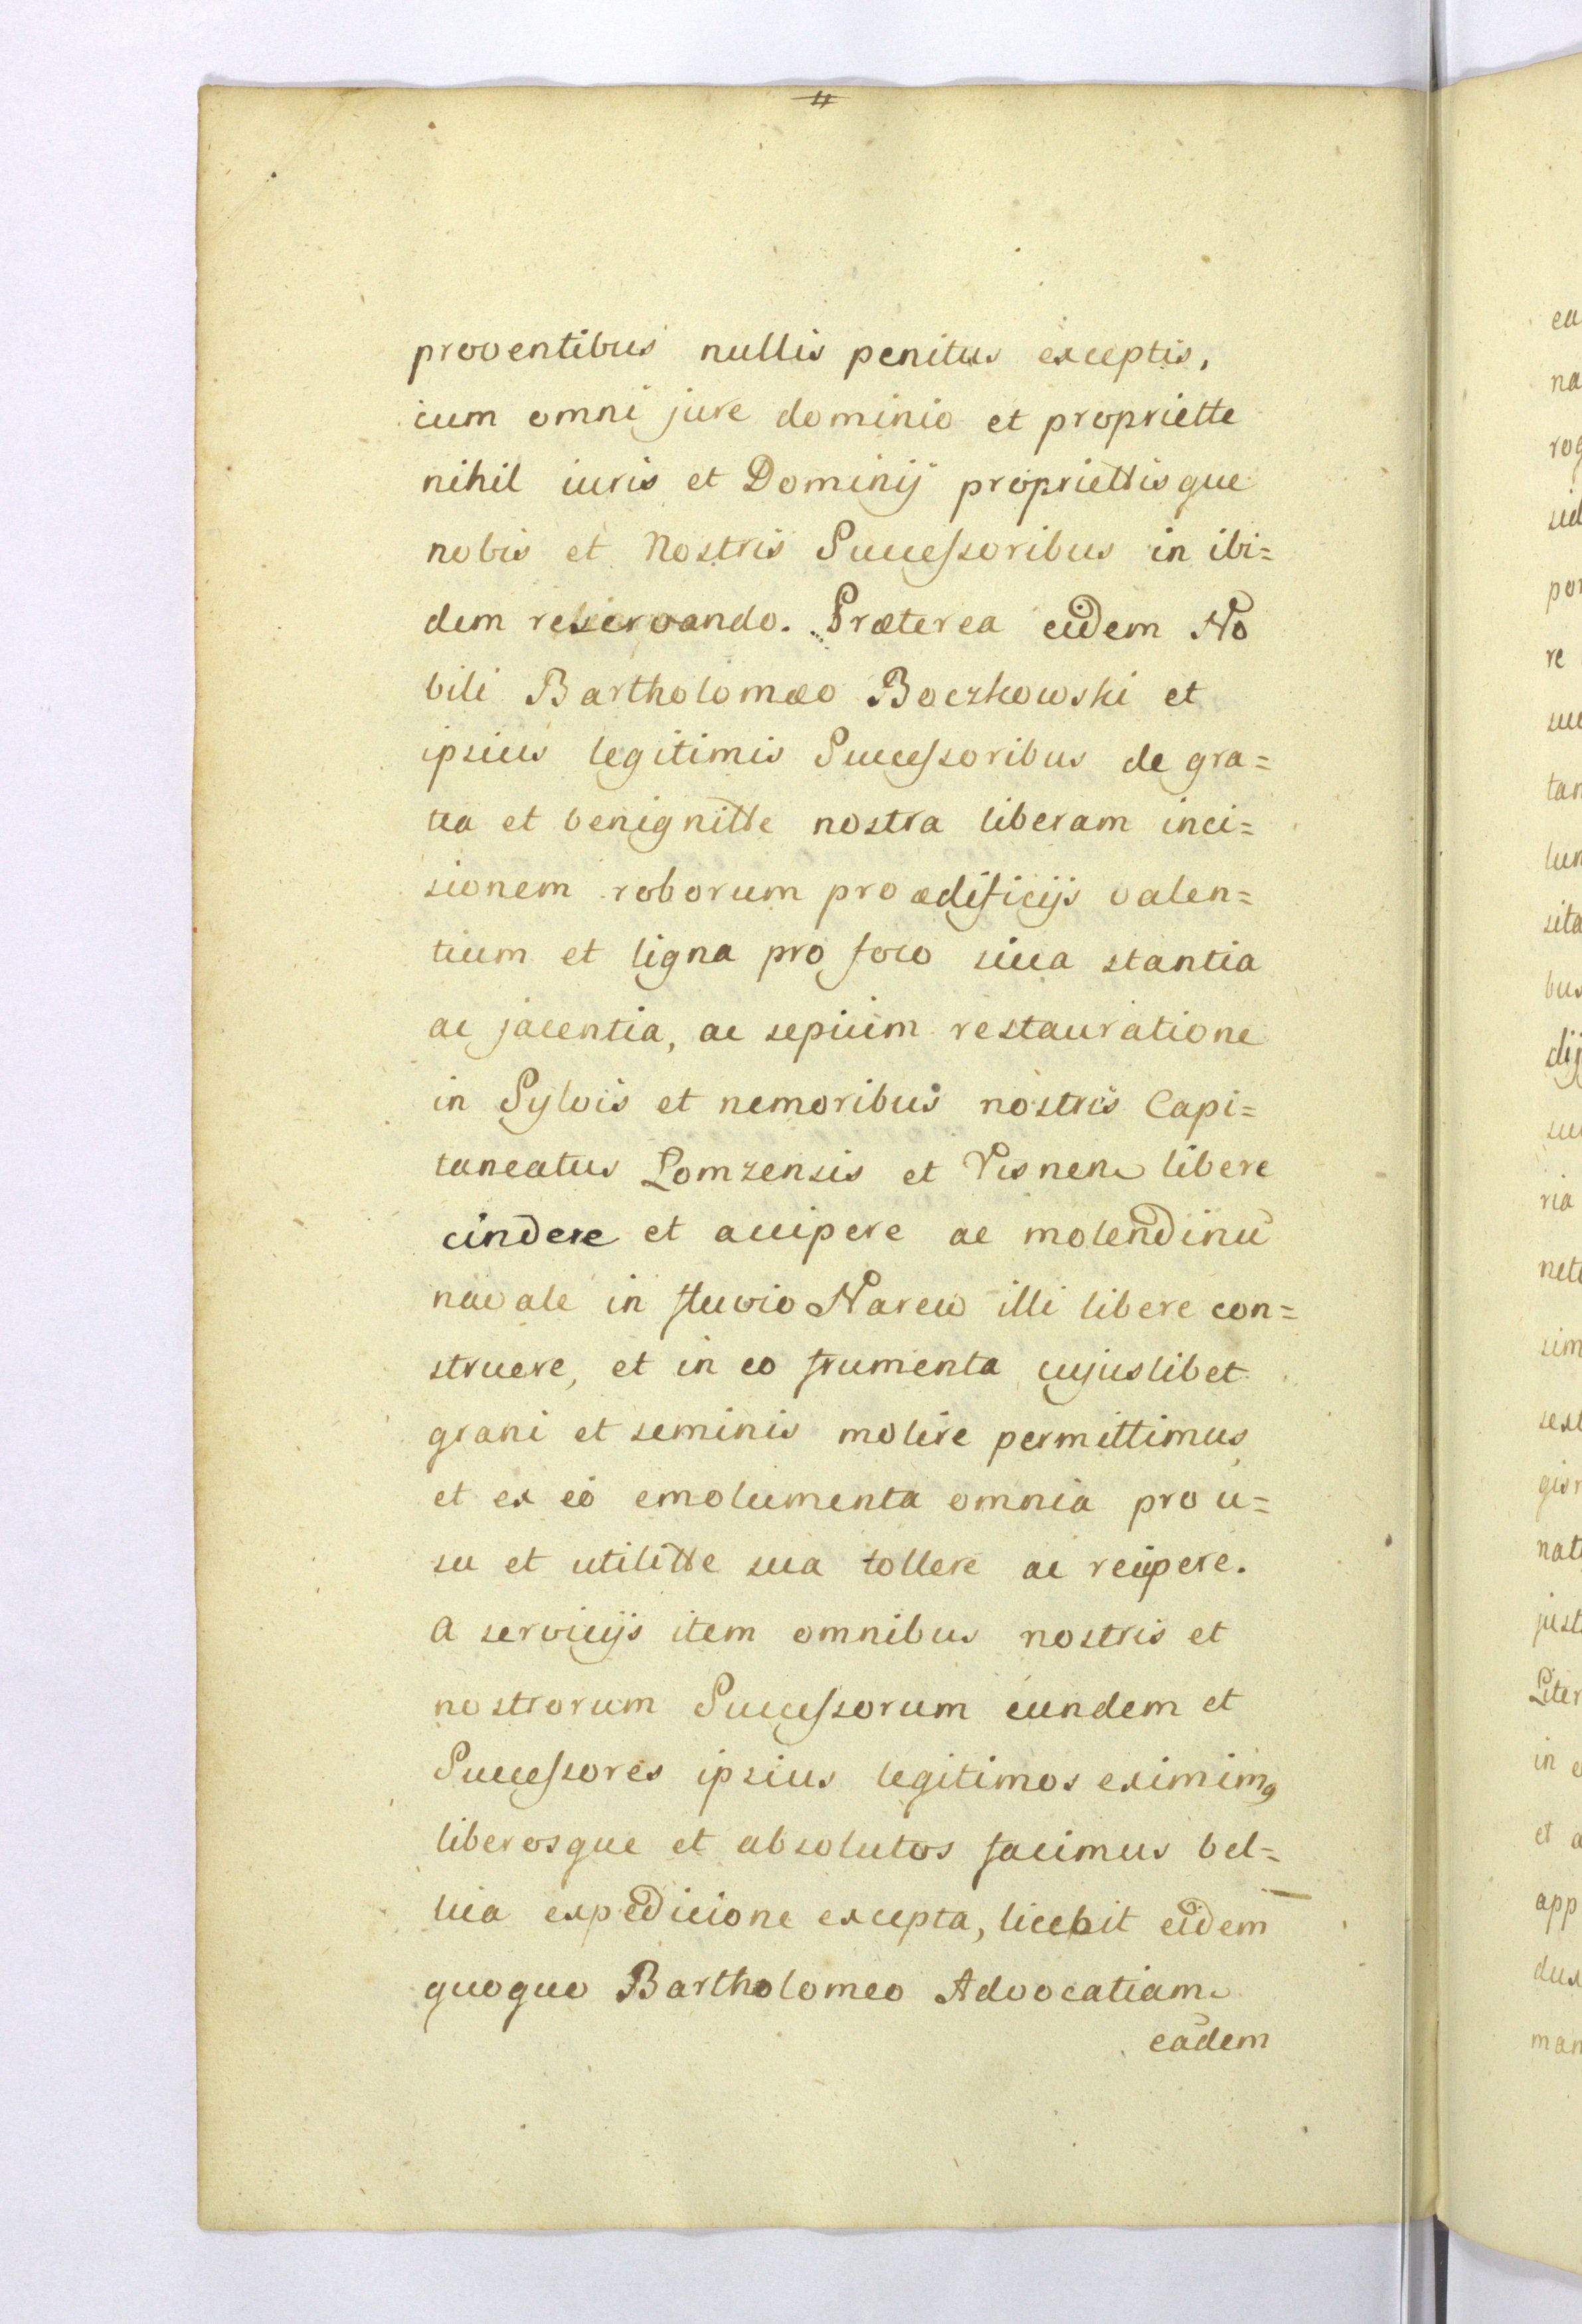 4
proventibus nullis penitus exceptis,
cum omni jure dominio et propriette
nihil iuris et Dominij propriettisque
nobis et Nostris Successoribus in ibi=
dem reservando. Præterea eidem No
bili Bartholomæo Boczkowski et
ipsius legitimis Successoribus de gra=
tia et benignitte nostra liberam inci=
sionem roborum pro ædificijs valen=
tium et ligna pro foco sicca stantia
ac jacentia, ac sepium restauratione
in Sylvis et nemoribus nostris Capi=
taneatus Lomzensis et Visnen libere
cindere et accipere ac molendinū
navale in fluvio Narew illi libere con=
struere, et in eo frumenta cujuslibet
grani et seminis molire permittimus,
et ex eo emolumenta omnia pro u=
su et utilitte sua tollere ac recipere.
A servicijs item omnibus nostris et
nostrorum Successorum eundem et
Successores ipsius legitimos eximimꝯ
liberosque et absolutos facimus bel=
lica expedicione excepta, licebit eidem
quoquo Bartholomeo Advocatiam
eādem